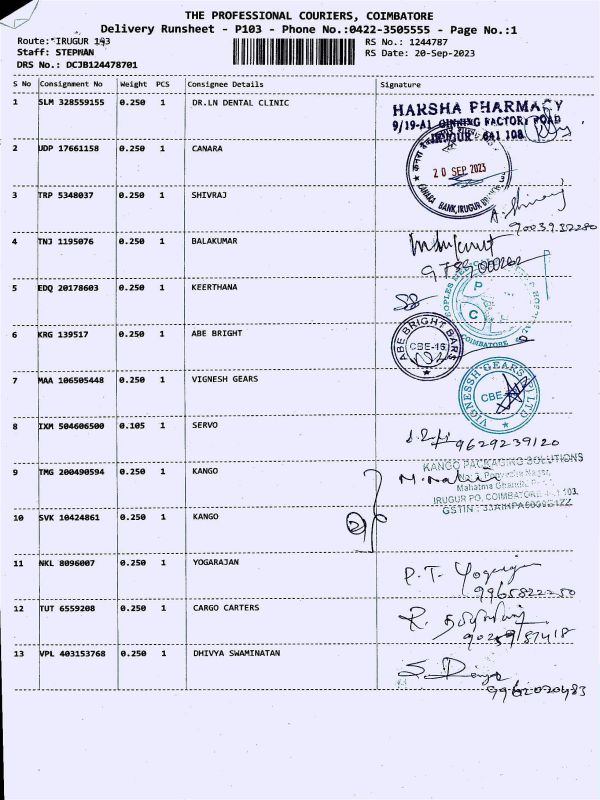 THE PROFESSIONAL COURIERS, COIMBATORE
Delivery Runsheet - P103 - Phone No.:0422-3505555 - Page No.:1
Route: IRUGUR 143
RS No.: 1244787
Staff: STEPMAN
RS Date: 20-Sep-2023
DRS No.: DCJB124478701
S No Consignment No Weight PCS Consignee Details Signature
1 SLM 328559155 0.250 1 DR.LN DENTAL CLINIC
HARSHA PHARMACY
9/19-A1, GINNING FACTORY ROAD
IRUGUR 641 103
2 UDP 17661158 0.250 1 CANARA
20 SEP 2023
CANARA BANK, IRUGUR
3 TRP 5348037 0.250 1 SHIVRAJ
4 TNJ 1195076 0.250 1 BALAKUMAR
5 EDQ 20178603 0.250 1 KEERTHANA
COIMBATORE
6 KRG 139517 0.250 1 ABE BRIGHT
ABE BRIGHT BARS
CBE-16
7 MAA 106505448 0.250 1 VIGNESH GEARS
VIGNESSH GEARS (P) LTD
CBE
8 IXM 504606500 0.105 1 SERVO
9629239120
9 TMG 200490594 0.250 1 KANGO
KANGO PACKAGING SOLUTIONS
IRUGUR PO, COIMBATORE
GSTIN
10 SVK 10424861 0.250 1 KANGO
11 NKL 8096007 0.250 1 YOGARAJAN
P.T.
9965822250
12 TUT 6559208 0.250 1 CARGO CARTERS
R.
13 VPL 403153768 0.250 1 DHIVYA SWAMINATAN
S. Divya
9962020483